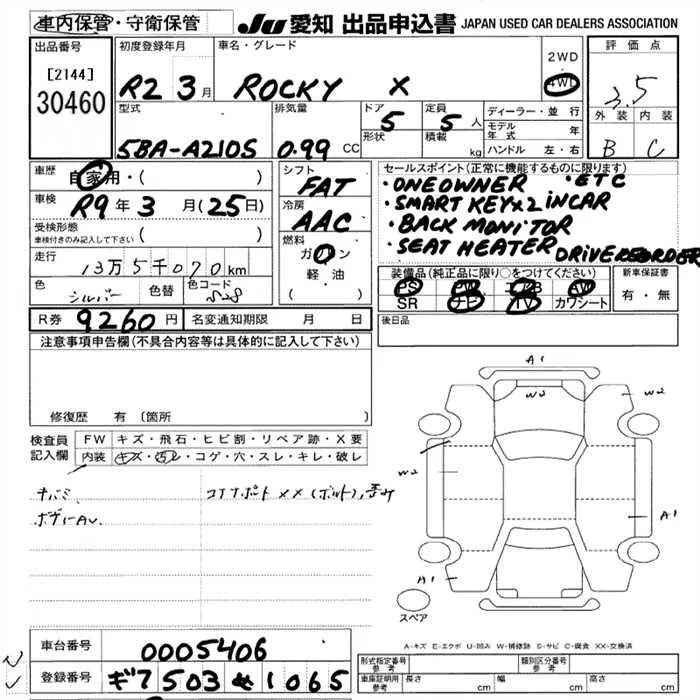 車内保管・守衛保管
JU 愛知 出品申込書 JAPAN USED CAR DEALERS ASSOCIATION
出品番号
[2144]
30460
初度登録年月
R2 3月
車名・グレード
ROCKY X
2WD
4WD
評価点
3.5
外装 内装
B C
型式
5BA-A210S
排気量
0.99 CC
ドア
5
形状
定員
5人
積載 kg
ディーラー・並行
モデル年式 年
ハンドル 左・右
車歴
自家用・( )
車検
R9年3月(25日)
受検形態
車検付きのみ記入して下さい ( )
走行
13万5千070km
色
シルバー
色替
色コード
S28
シフト
FAT
冷房
AAC
燃料
ガソリン
軽油
( )
セールスポイント(正常に機能するものに限ります)
・ONE OWNER ・ETC
・SMART KEY×2 IN CAR
・BACK MONITOR
・SEAT HEATER DRIVE RECORDER
装備品(純正品に限り○をつけてください)
PS PW エアB AW
SR ナビ TV カワシート
新車保証書
有・無
R券 9260円 名変通知期限 月 日
後日品
注意事項申告欄(不具合内容等は具体的に記入して下さい)
修復歴 有(箇所
検査員
記入欄
FW キズ・飛石・ヒビ割・リペア跡・X要
内装 キズ・汚レ・コゲ・穴・スレ・キレ・破レ
コアサポート××(ボルト),歪み
A1
W2
W2
W2
A1
A1
スペア
A-キズ E-エクボ U-凹み W-補修跡 S-サビ C-腐食 XX-交換済
車台番号
0005406
登録番号
503 せ 1065
形式指定番号
参考
類別区分番号
参考
車庫証明用
参考
長さ cm
幅 cm
高さ cm